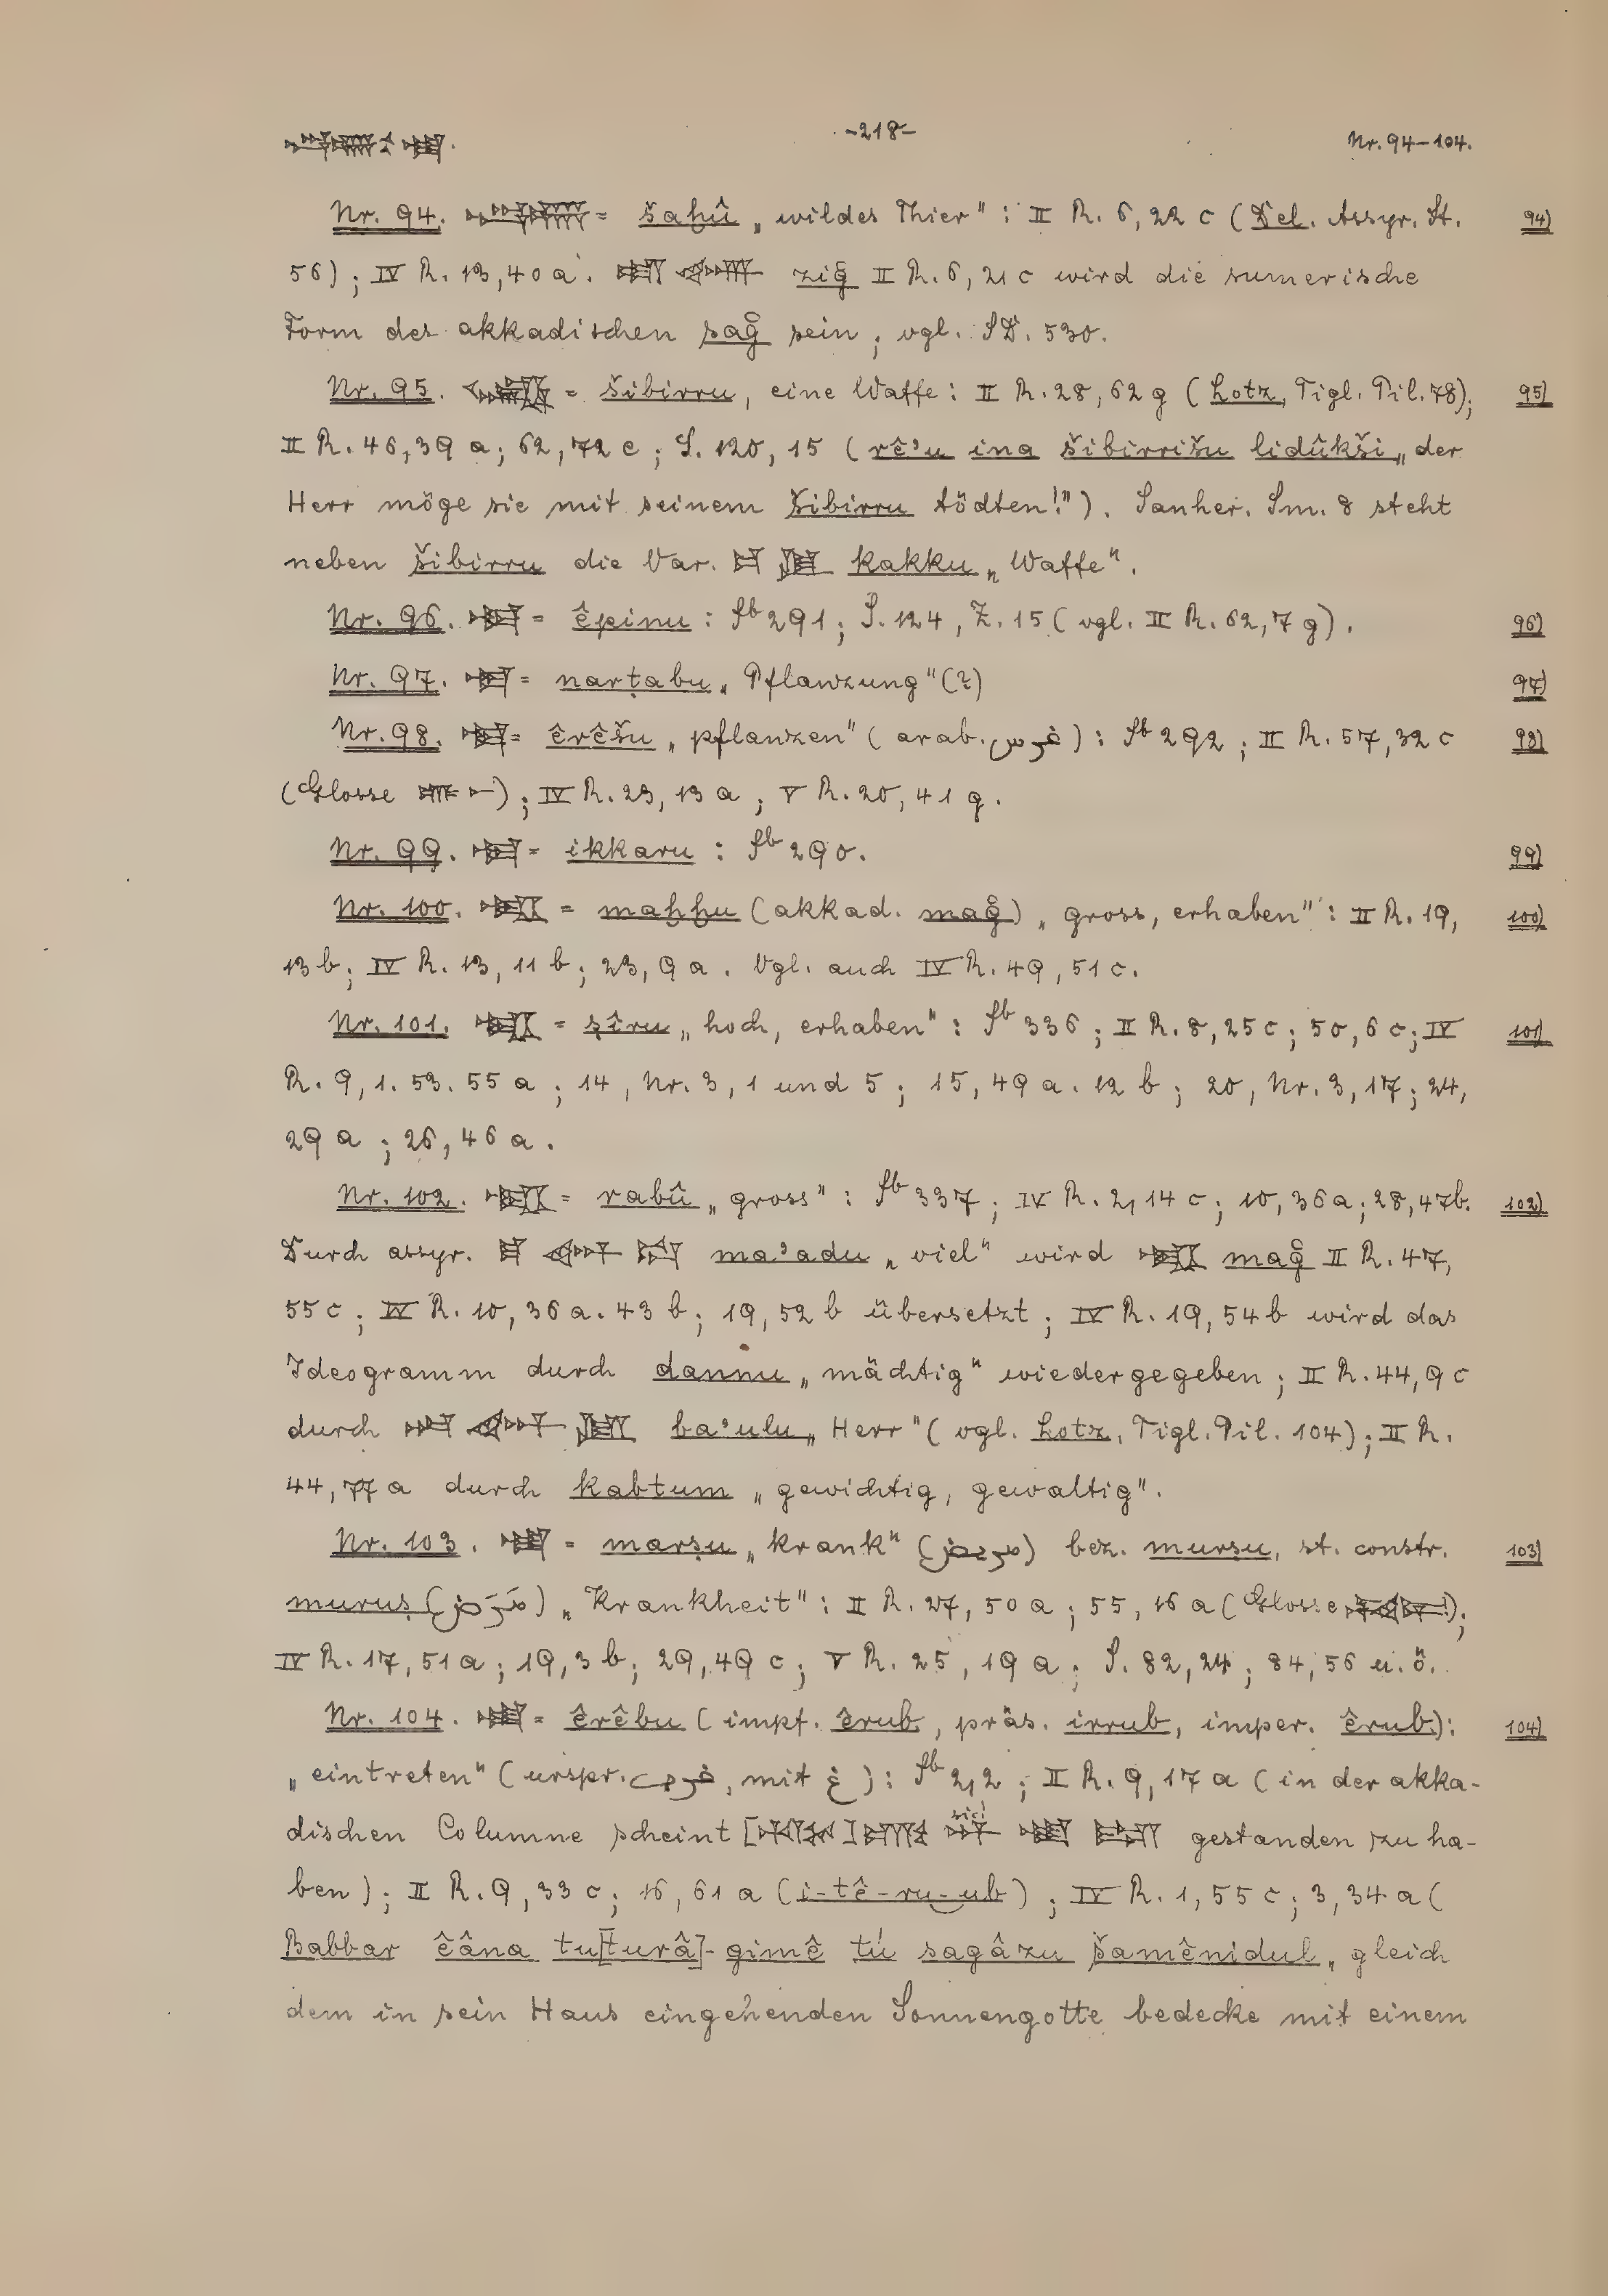 -218-
Nr. 94-104.
Nr. 94. = šaḫû „wildes Thier“: II R. 6, 22 c (Del. Assyr. St. 94)
56); IV R. 13, 40 a. ziğ II R. 6, 21 c wird die sumerische
Form des akkadischen sağ sein; vgl. SD. 530.
Nr. 95. = šibirru, eine Waffe: II R. 28, 62 g (Lotz, Tigl. Pil. 78); 95)
II R. 46, 39 a; 62, 72 c; S. 120, 15 (rê'u ina šibirrišu lidûkši „der
Herr möge sie mit seinem šibirru tödten!“). Sanher. Sm. 8 steht
neben šibirru die Var. kakku „Waffe“.
Nr. 96. = êpinu: Sᵇ 291; S. 124, Z. 15 (vgl. II R. 62, 7 g). 96)
Nr. 97. = narṭabu „Pflanzung“(?) 97)
Nr. 98. = êrêšu „pflanzen“ (arab. غرس): Sᵇ 292; II R. 57, 32 c 98)
(Glosse ); IV R. 23, 13 a; V R. 20, 41 g.
Nr. 99. = ikkaru: Sᵇ 290. 99)
Nr. 100. = maḫḫu (akkad. mağ) „gross, erhaben“: II R. 19, 100)
13 b; IV R. 13, 11 b; 23, 9 a. Vgl. auch IV R. 49, 51 c.
Nr. 101. = ṣîru „hoch, erhaben“: Sᵇ 336; II R. 8, 25 c; 50, 6 c; IV 101)
R. 9, 1. 53. 55 a; 14, Nr. 3, 1 und 5; 15, 49 a. 12 b; 20, Nr. 3, 17; 24,
29 a; 26, 46 a.
Nr. 102. = rabû „gross“: Sᵇ 337; IV R. 2, 14 c; 10, 36 a; 28, 47 b. 102)
Durch assyr. ma'adu „viel“ wird mağ II R. 47,
55 c; IV R. 10, 36 a. 43 b; 19, 52 b übersetzt; IV R. 19, 54 b wird das
Ideogramm durch dannu „mächtig“ wiedergegeben; II R. 44, 9 c
durch ba'ulu „Herr“ (vgl. Lotz, Tigl. Pil. 104); II R.
44, 77 a durch kabtum „gewichtig, gewaltig“.
Nr. 103. = marṣu „krank“ (مرض) bez. murṣu, st. constr. 103)
muruṣ (مَرَض) „Krankheit“: II R. 27, 50 a; 55, 16 a (Glosse !);
IV R. 17, 51 a; 19, 3 b; 29, 49 c; V R. 25, 19 a; S. 82, 24; 84, 56 u. ö.
Nr. 104. = êrêbu (impf. êrub, präs. irrub, imper. êrub): 104)
„eintreten“ (urspr. غرب, mit غ): Sᵇ 2, 2; II R. 9, 17 a (in der akka-
dischen Columne scheint [ ] sic! gestanden zu ha-
ben); II R. 9, 33 c; 16, 61 a (i-tê-ru-ub); IV R. 1, 55 c; 3, 34 a (
Babbar êâna tu[turâ]-gimê tú sagâzu šamênidul „gleich
dem in sein Haus eingehenden Sonnengotte bedecke mit einem